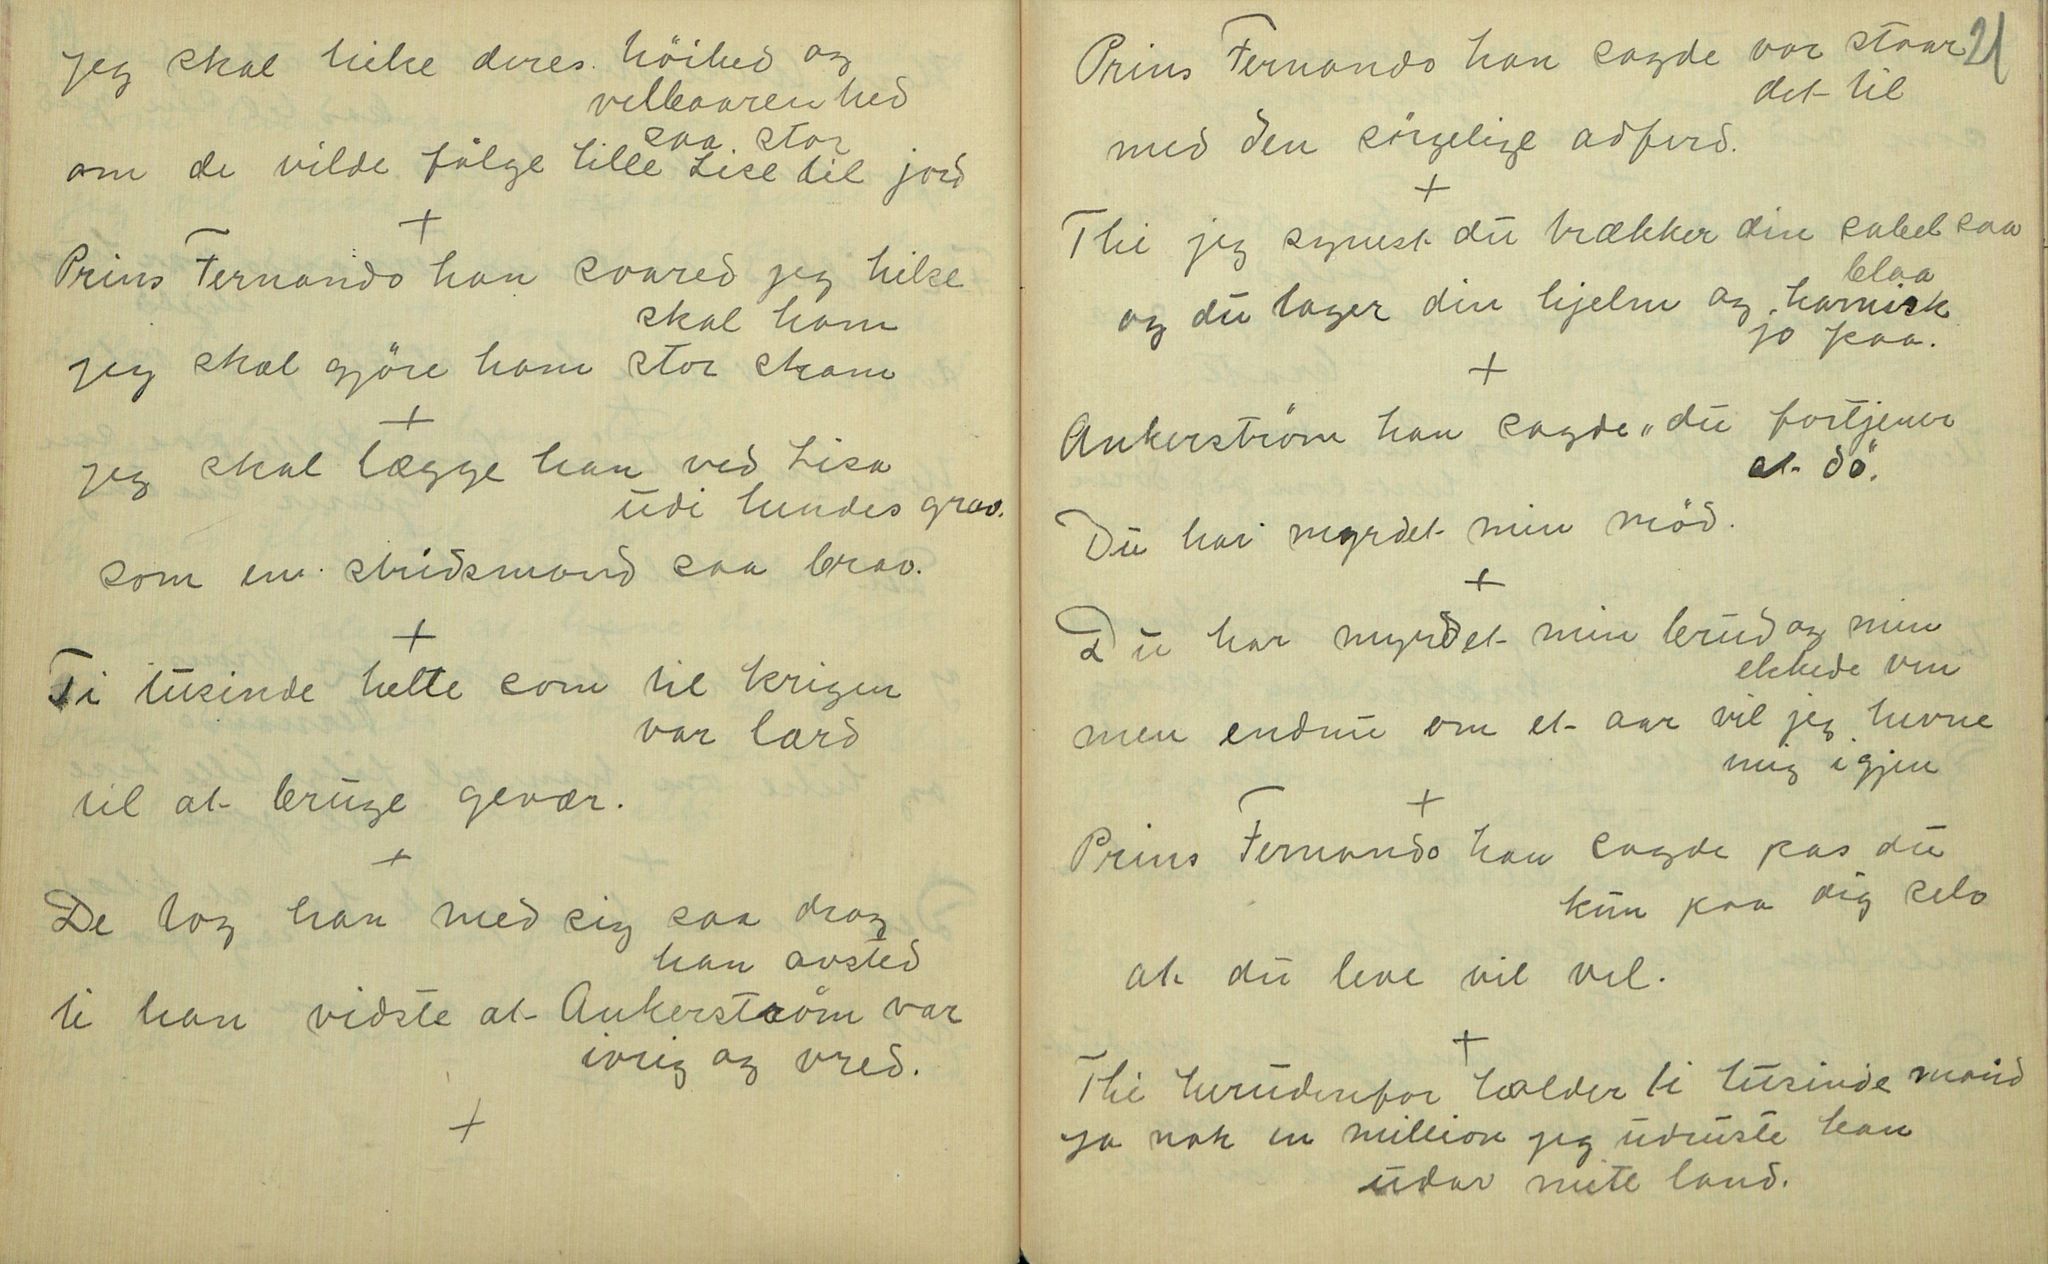 jeg skal hilse deres höihed og
velbaarenhed
saa stor
om de vilde fölge lille Lise til jord
+
Prins Fernando han svared jeg hilse
skal ham
jeg skal gjöre ham stor skam
+
jeg skal lægge han ved Lisa
udi hundes grav.
som en stridsmand saa brav.
+
Ti tusinde helte som til krigen
var lærd
til at bruge gevær.
+
De tog han med sig saa drog
han avsted
ti han vidste at Ankerström var
ivrig og vred.
+
21
Prins Fernando han sagde var staar
det til
med den sörgelige adferd.
+
Thi jeg synest du trækker din sabel saa
blaa
og du tager din hjelm og harnisk
jo paa.
+
Ankerström han sagde „du fortjener
at dö".
Du har myrdet min mö.
+
Du har myrdet min brud og min
elskede ven
men endnu om et aar vil jeg hevne
mig igjen
+
Prins Fernando han sagde pas du
kun paa dig selv
at du leve vil vel.
+
Thi herudenfor holder ti tusinde mand
ja nok en million jeg udruste kan
udav mite land.